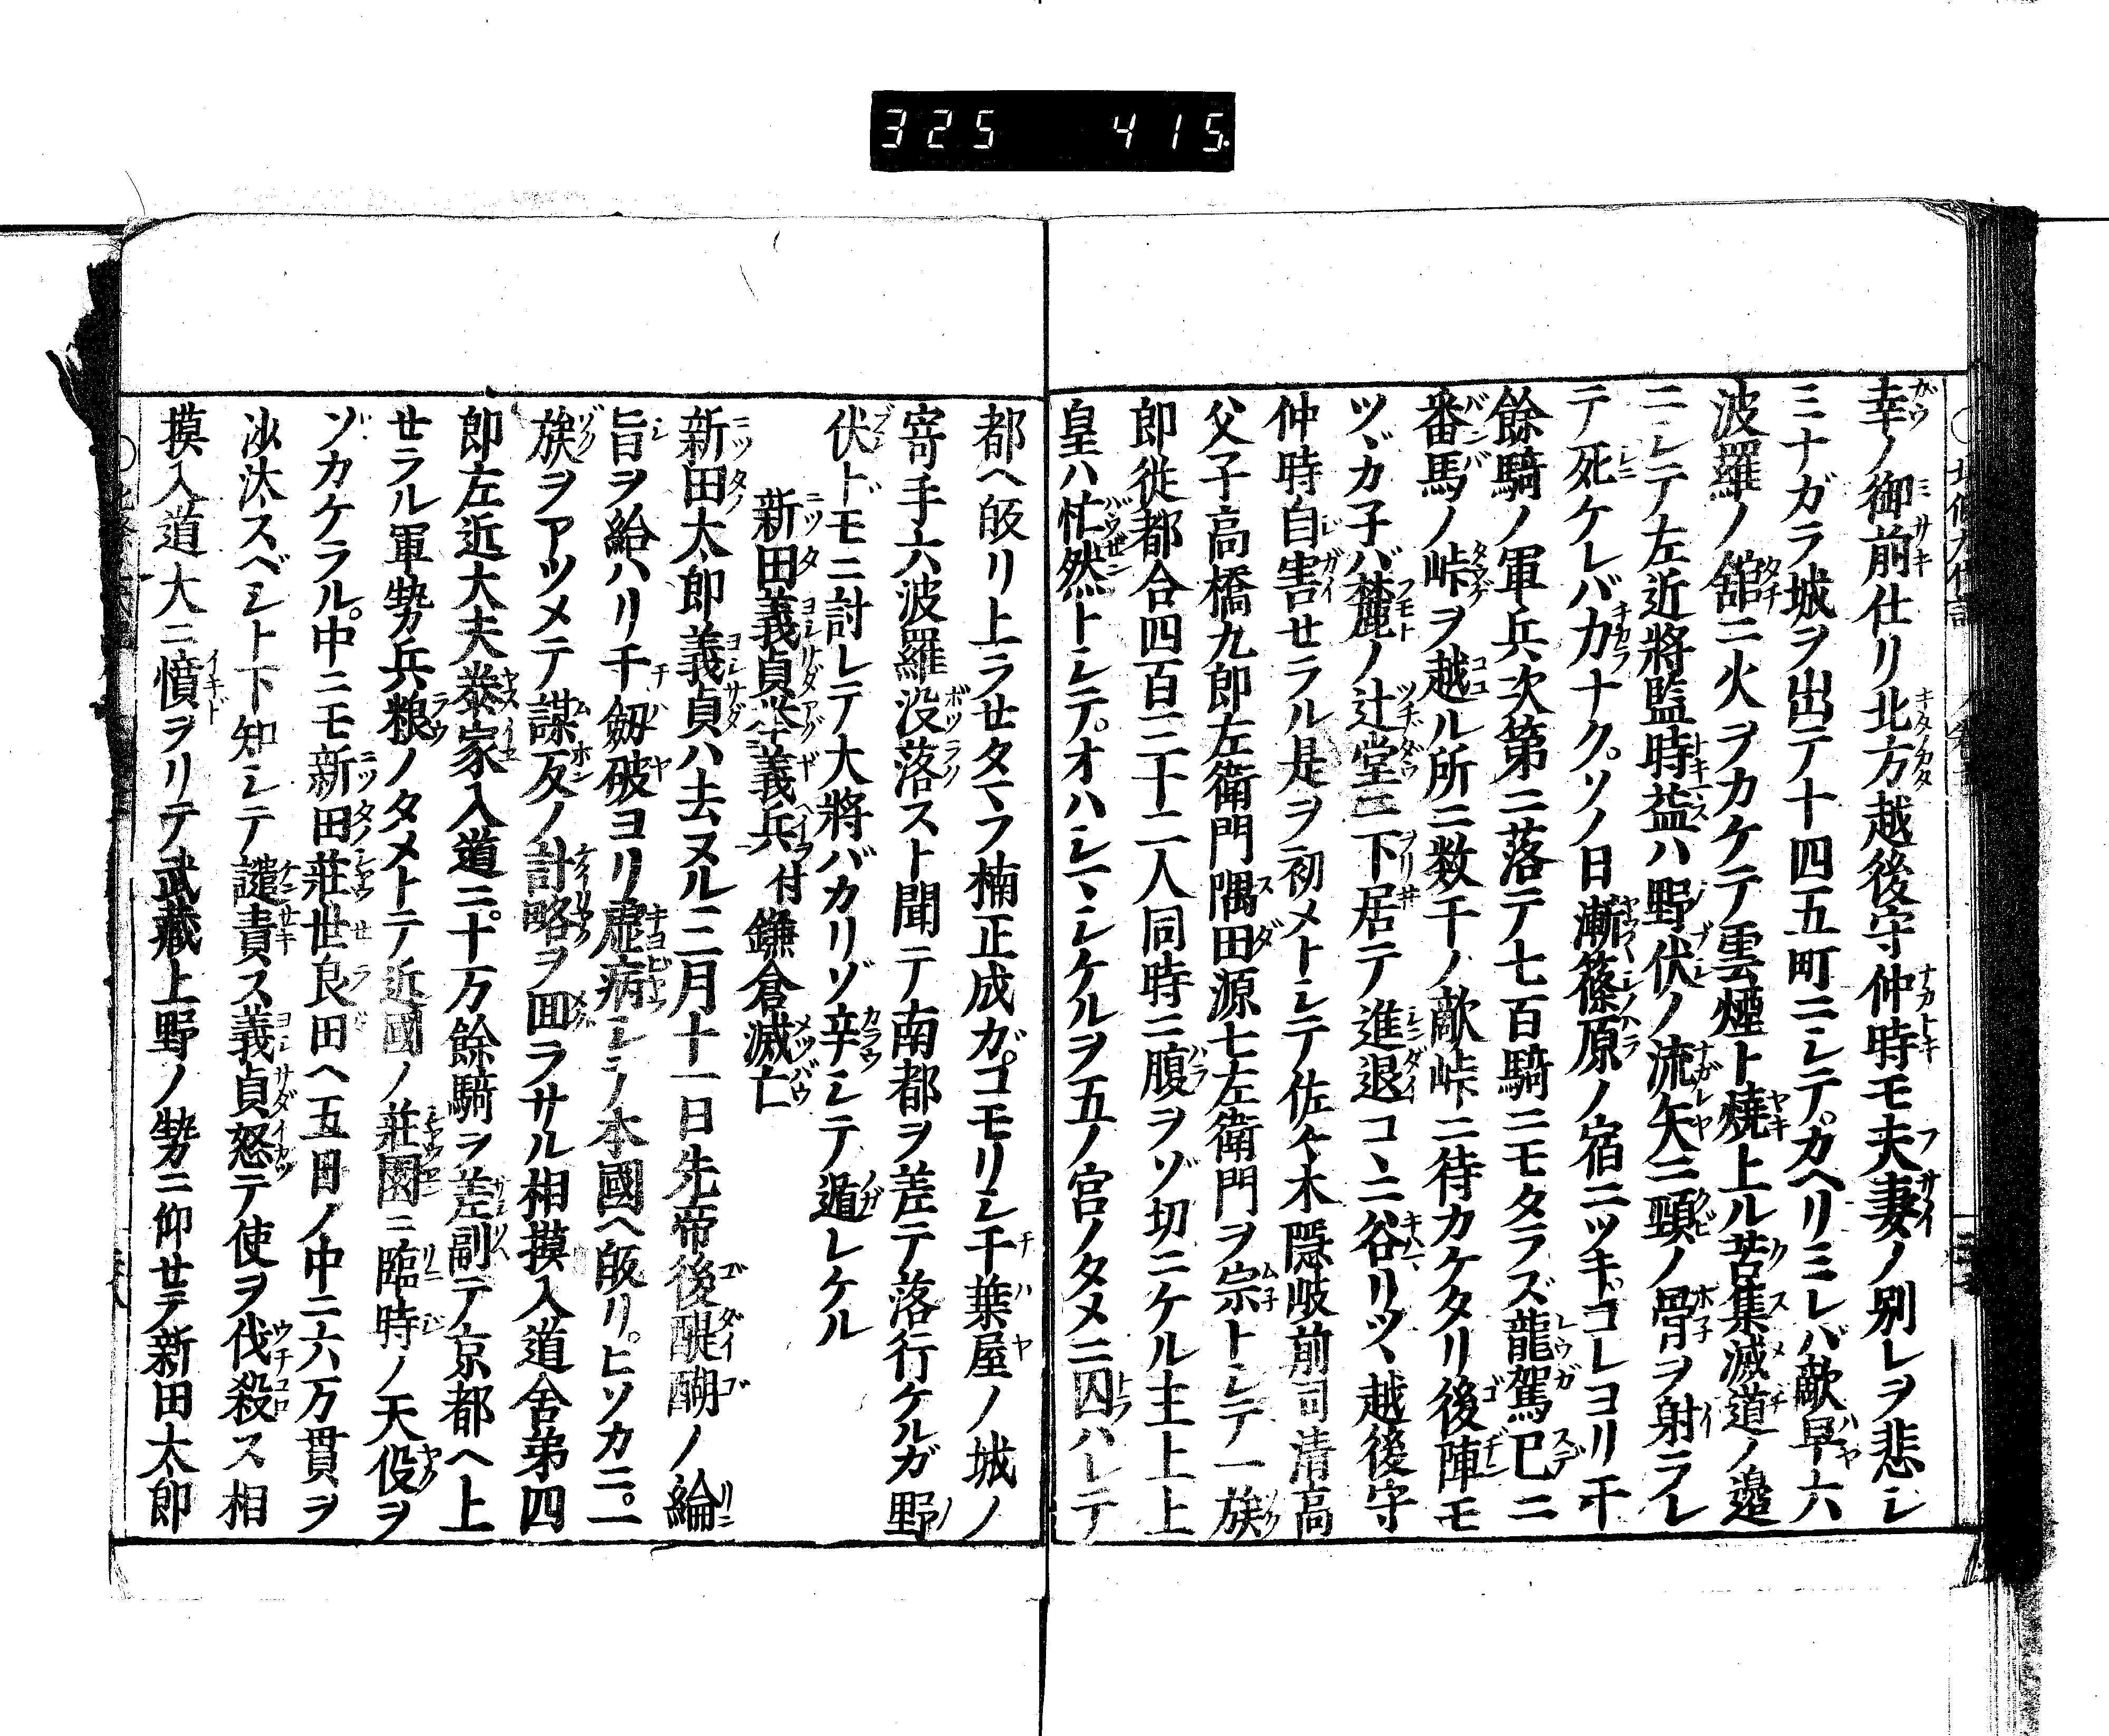 325 415
幸ノ御前仕リ北方越後守仲時モ夫妻ノ別レヲ悲シ
ミナガラ城ヲ出テ十四五町ニシテ。カヘリミレバ敵早六
波羅ノ舘ニ火ヲカケテ雲煙ト焼上ル苦集滅道ノ邉
ニシテ左近將監時益ハ野伏ノ流矢ニ頸ノ骨ヲ射ラレ
テ死ケレバ力ナク。ソノ日漸篠原ノ宿ニツキ。コレヨリ千
餘騎ノ軍兵次第ニ落テ七百騎ニモタラズ龍駕已ニ
番馬ノ峠ヲ越ル所ニ数千ノ敵峠ニ待カケタリ後陣モ
ツヾカ子バ麓ノ辻堂ニ下居テ進退コヽニ谷リツヽ越後守
仲時自害セラル是ヲ初メトシテ佐々木隠岐前司清高
父子高橋九郎左衛門隅田源七左衛門ヲ宗トシテ一族
郎従都合四百三十二人同時ニ腹ヲゾ切ニケル主上上
皇ハ忙然トシテ。オハシマシケルヲ五ノ官ノタメニ囚ハレテ
都ヘ皈リ上ラセタマフ楠正成ガ。コモリシ千葉屋ノ城ノ
寄手六波羅没落スト聞テ南都ヲ差テ落行ケルガ野
伏ドモニ討レテ大將バカリゾ辛シテ遁レケル
新田義貞挙義兵付鎌倉滅亡
新田太郎義貞ハ去ヌル三月十一日先帝後醍醐ノ綸
旨ヲ給ハリ千劔破ヨリ虚病シテ本國ヘ皈リ。ヒソカニ。一
族ヲアツメテ謀反ノ計略ヲ囬ラサル相摸入道舎弟四
郎左近大夫泰家入道ニ。十万餘騎ヲ差副テ京都ヘ上
セラル軍勢兵粮ノタメトテ近國ノ莊園ニ臨時ノ天役ヲ
ゾカケラル。中ニモ新田莊世良田ヘ五日ノ中ニ六万貫ヲ
沙汰スベシト下知シテ譴責ス義貞怒テ使ヲ伐殺ス相
摸入道大ニ憤ヲリテ武藏上野ノ勢ニ仰セテ新田太郎